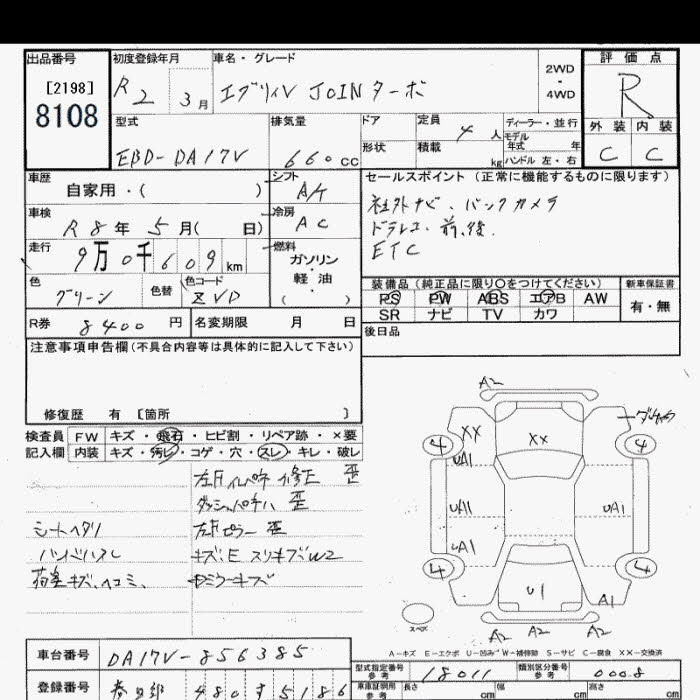 出品番号
[2198]
8108
初度登録年月
R2 3月
車名・グレード
エブリィV JOINターボ
2WD
・
4WD
評価点
R
外装 内装
C C
型式
EBD-DA17V
排気量
660cc
ドア
形状
定員 4 人
積載 kg
ディーラー・並行
モデル
年式 年
ハンドル 左・右
車歴
自家用・( )
シフト
A/T
車検
R8年5月( 日)
冷房
AC
走行
9万0千609km
燃料
ガソリン
・
軽油
( )
色
グリーン
色替
色コード
ZVD
R券 8400円
名変期限 月 日
セールスポイント(正常に機能するものに限ります)
社外ナビ、バックカメラ
ドラレコ 前、後、
ETC
装備品(純正品に限り○をつけてください)
PS PW ABS エアB AW
SR ナビ TV カワ
新車保証書
有・無
後日品
注意事項申告欄(不具合内容等は具体的に記入して下さい)
修復歴 有 [箇所 ]
検査員
記入欄
FW キズ・飛石・ヒビ割・リペア跡・×要
内装 キズ・汚レ・コゲ・穴・スレ・キレ・破レ
左Fインパネ 修E 歪
ダッシュパネル 歪
シートヘタリ
左Fピラー 歪
キズ、E スリキズ W2
荷室キズ、ヘコミ、
ミラーキズ
A2
XX
XX
4
4
UA1
UA1
UA1
UA1
4
4
U1
A1
A2 A2 A2
スペア
A−キズ E−エクボ U−凹み W−補修跡 S−サビ C−腐食 XX−交換済
車台番号
DA17V-856385
登録番号
春日部 480 す 5186
型式指定番号
参考
18011
類別区分番号
参考
0008
車庫証明用
参考
長さ cm
幅 cm
高さ cm